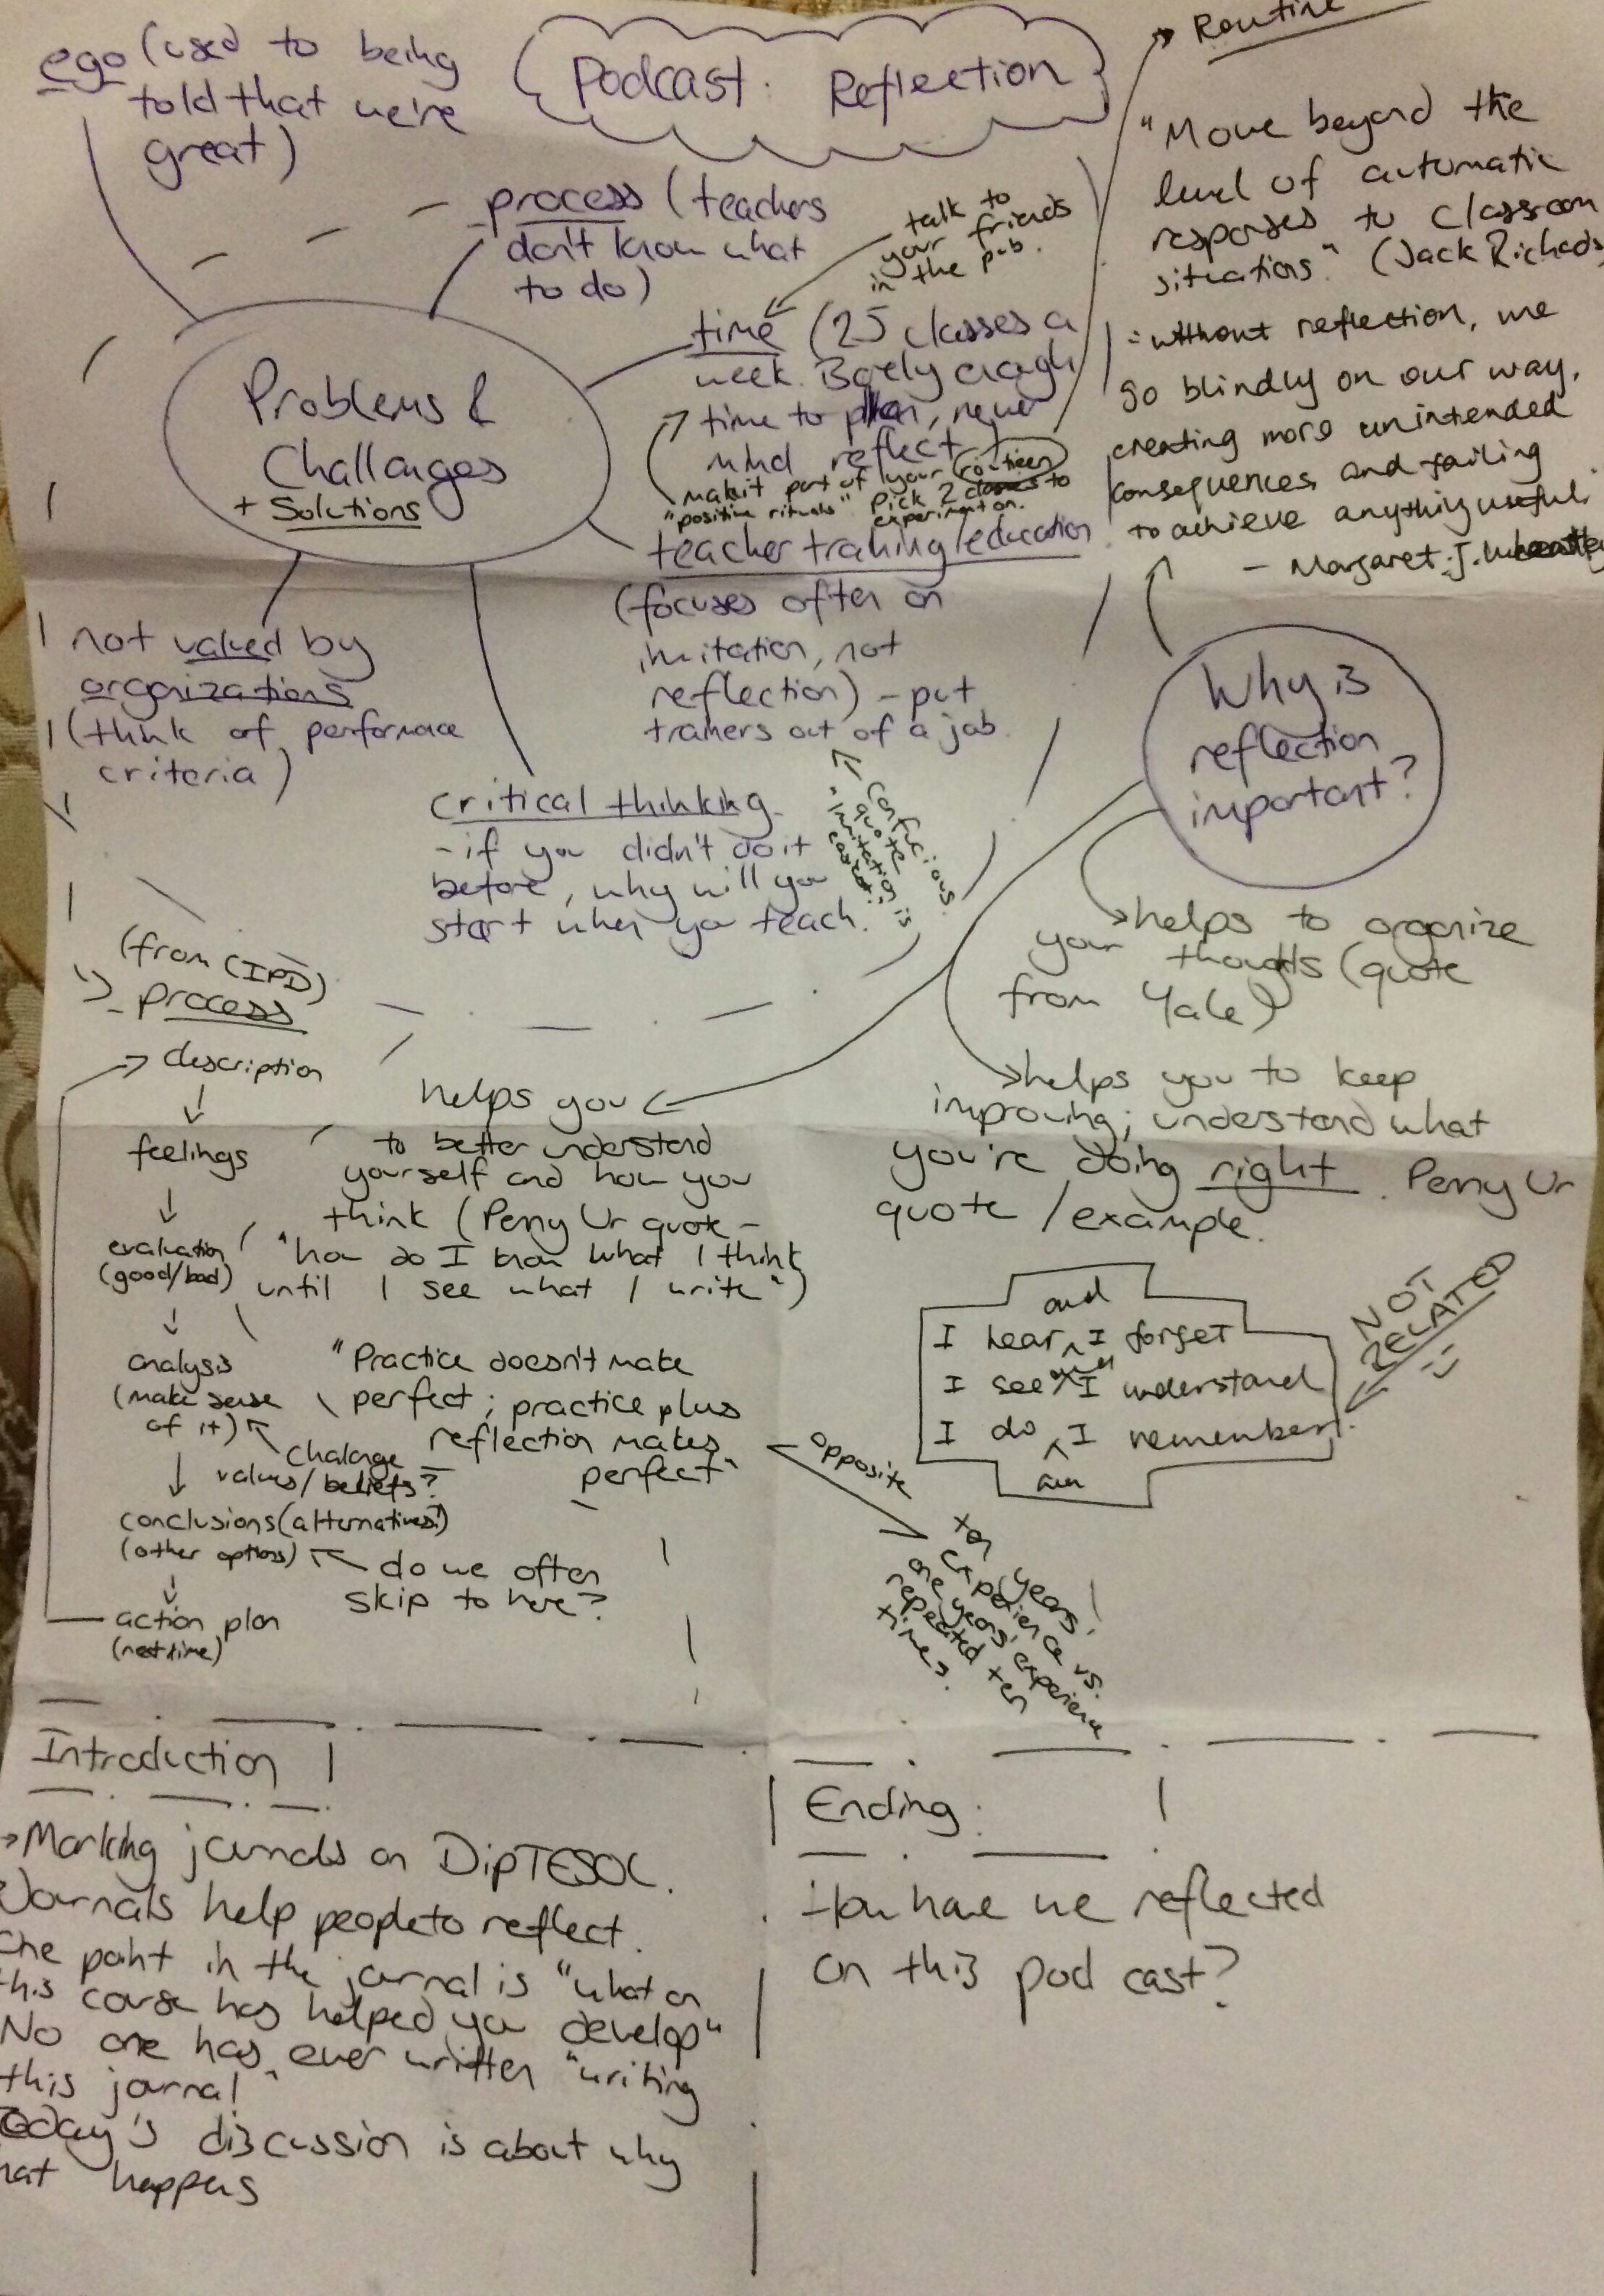 Podcast: Reflection
ego (used to being
told that we're
great)
process (teachers
don't know what
to do)
talk to
your friends
in the pub.
time (25 classes a
week. Barely enough
time to plan, never
mind reflect
make it part of your routine
"positive rituals" pick 2 classes to
experiment on.
Problems &
Challenges
+ Solutions
teacher training/education
(focuses often on
imitation, not
reflection) - put
trainers out of a job.
Confucious
quote
"imitation is
easiest"
not valued by
organizations
(think of performance
criteria)
critical thinking
- if you didn't do it
before, why will you
start when you teach.
Routine
"Move beyond the
level of automatic
responses to classroom
situations." (Jack Richards
without reflection, we
go blindly on our way,
creating more unintended
consequences and failing
to achieve anything useful.
- Margaret J. Wheatley
Why is
reflection
important?
helps to organize
your thoughts (quote
from Yale)
helps you to keep
improving; understand what
you're doing right. Penny Ur
quote / example.
helps you
to better understand
yourself and how you
think (Penny Ur quote -
"how do I know what I think
until I see what I write")
(from (IPD)
- process
description
feelings
evaluation
(good/bad)
analysis
(make sense
of it)
Challenge
values/beliefs?
conclusions (alternatives?)
(other options)
do we often
skip to here?
action plan
(next time)
"Practice doesn't make
perfect; practice plus
reflection makes
perfect"
opposite
ten years'
experience vs.
one years' experience
repeated ten
times.
and
I hear ^ I forget
I see I understand
I do ^ I remember
NOT
RELATED
Introduction
→ Marking journals on DipTESOL.
Journals help people to reflect.
One point in the journal is "what on
this course has helped you develop"
No one has ever written "writing
this journal"
Today's discussion is about why
that happens
Ending:
How have we reflected
on this pod cast?